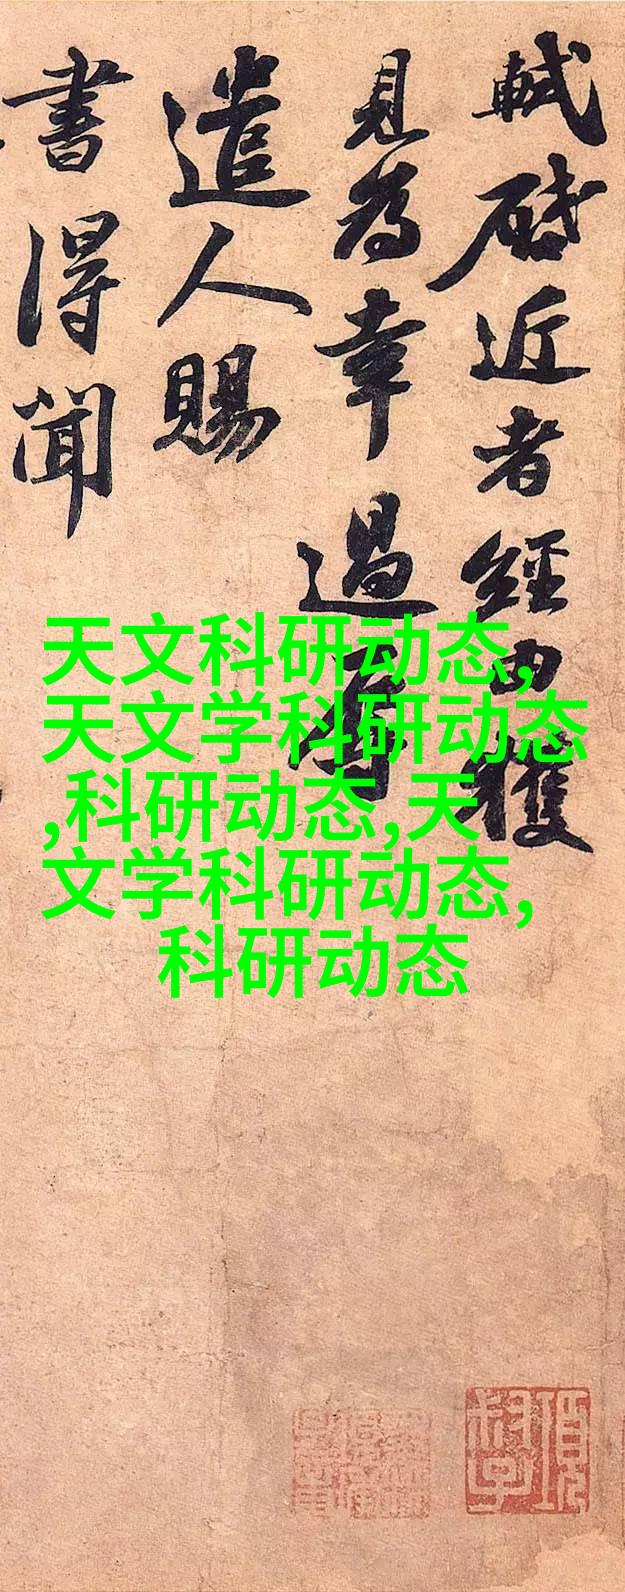 軾啓近者經由獲
見為幸過辱
遣人賜
書得聞
天文科研动态,
天文学科研动态
,科研动态,天
文学科研动态,
科研动态